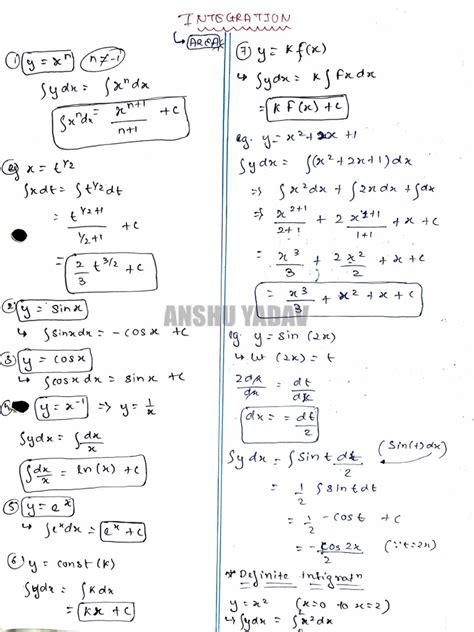 INTEGRATION
↳ AREA
① y = xⁿ n ≠ -1
∫ydx = ∫xⁿdx
∫xⁿdx = xⁿ⁺¹/n+1 + C
eg x = t^1/2
∫xdt = ∫t^1/2 dt
= t^(1/2+1)/(1/2+1) + C
= 2/3 t^3/2 + C
② y = sinx
↳ ∫sinxdx = -cosx + C
③ y = cosx
↳ ∫cosxdx = sinx + C
y = x⁻¹ ⇒ y = 1/x
∫ydx = ∫dx/x
∫dx/x = ln(x) + C
⑤ y = eˣ
↳ ∫eˣdx = eˣ + C
⑥ y = const (K)
∫ydx = ∫Kdx
= Kx + C
⑦ y = K f(x)
↳ ∫ydx = K ∫fxdx
= K f(x) + C
eg. y = x² + 2x + 1
∫ydx = ∫(x² + 2x + 1)dx
⇒ ∫x²dx + ∫2xdx + ∫dx
⇒ x²⁺¹/2+1 + 2x¹⁺¹/1+1 + x + C
= x³/3 + 2x²/2 + x + C
= x³/3 + x² + x + C
eg. y = sin (2x)
↳ let (2x) = t
2dx/dx = dt/dx
dx = = dt/2
∫ydx = ∫sint dt/2 (sin(t)dx)
= 1/2 ∫sintdt
= 1/2 -cost + C
= -cos2x/2 (∵t=2x)
* Definite Intigratn
y = x² (x=0 to x=2)
↳ ∫ydx = ∫x²dx
ANSHU YADAV